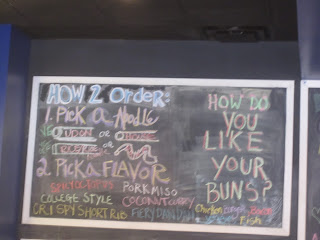 HOW 2 Order:
1. Pick a Noodle
UDON or
or
2. Pick a FLAVOR
PORK MISO
COLLEGE STYLE COCONUT CURRY
CRISPY SHORT RIB FIERY DAN DAN
HOW DO
YOU
LIKE
YOUR
BUNS?
Chicken
Fish